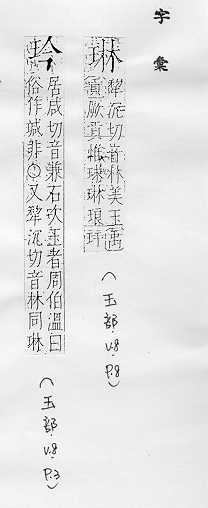 字彙
琳 犂沉切音林美玉禹
貢厥貢惟球琳琅玕
(玉部.V.8.P.8)
玪 居咸切音兼石次玉者周伯溫曰
俗作瑊非○又犂沉切音林同琳
(玉部.V.8.P.3)